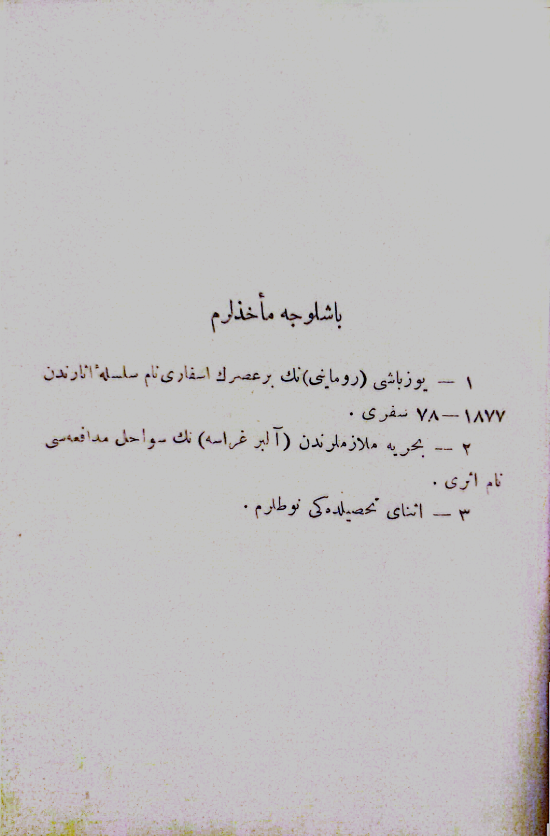 باشلوجه مأخذلرم
١ — یوزباشی (رومانی) نك بر عصرك اسفاری نام سلسلهٔ آثارندن
١٨٧٧—٧٨ سفری .
٢ — بحریه ملازملرندن (آلبر غراسه) نك سواحل مدافعه‌سی
نام اثری .
٣ — اثنای تحصیلده‌كی نوطلرم .